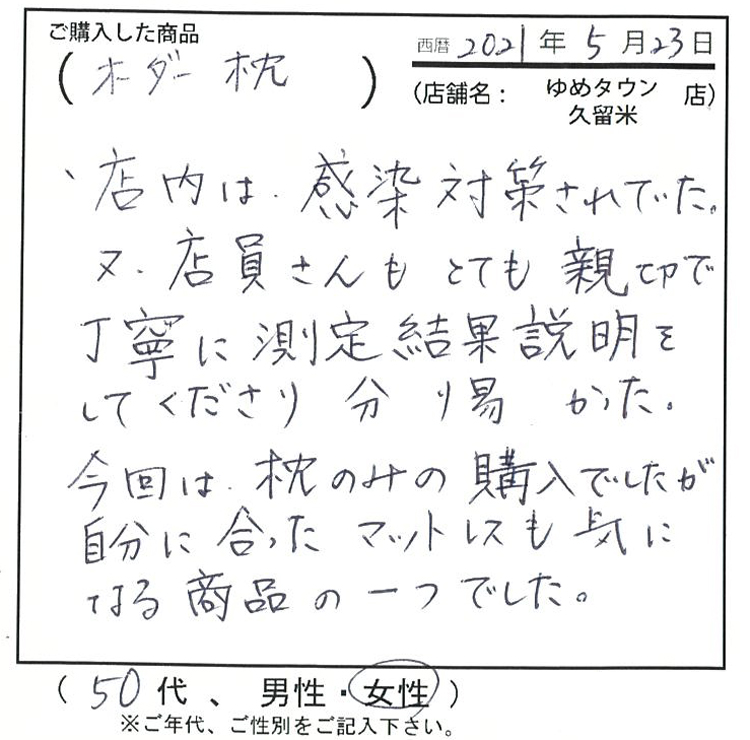 ご購入した商品
(オーダー枕)
西暦 2021年5月23日
(店舗名: ゆめタウン久留米 店)
、店内は、感染対策されていた。
又、店員さんもとても親切で
丁寧に測定結果説明を
してくださり分り易かった。
今回は、枕のみの購入でしたが
自分に合ったマットレスも気に
なる商品の一つでした。
(50代、男性・女性)
※ご年代、ご性別をご記入下さい。